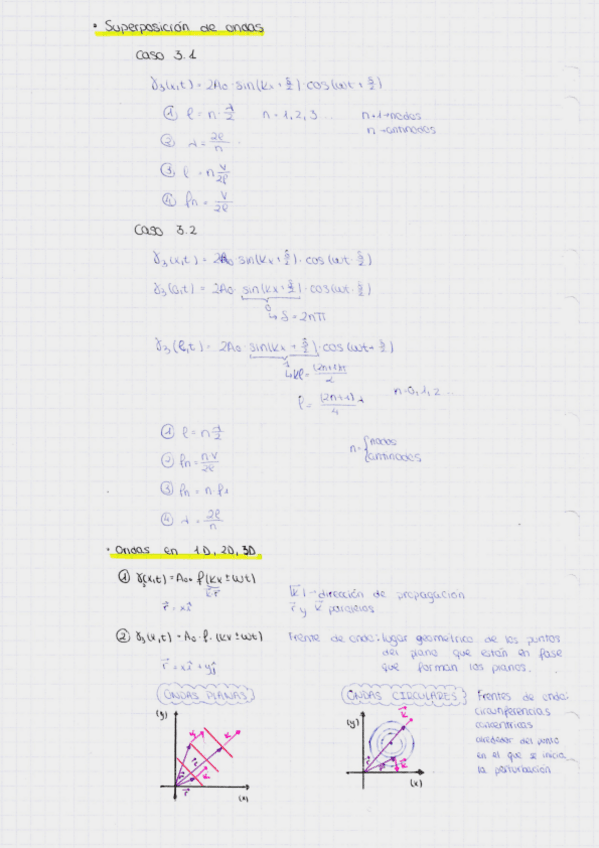 • Superposición de ondas
Caso 3.1
γ₃(x,t) = 2A₀ · sin(kx + δ/2) · cos(ωt + δ/2)
① ℓ = n · λ/2   n = 1, 2, 3 ...   n+1 → nodos
n → antinodos
② λ = 2ℓ/n
③ ℓ = n v/2f
④ fn = v/2ℓ
Caso 3.2
γ₃(x,t) = 2A₀ sin(kx + δ/2) · cos(ωt · δ/2)
γ₃(0,t) = 2A₀ · sin(kx + δ/2) · cos(ωt · δ/2)
0
↳ δ = 2nπ
γ₃(ℓ,t) = 2A₀ · sin(kx + δ/2) · cos(ωt + δ/2)
1
↳ kℓ = (2n+1)π/2
ℓ = (2n+1)λ/4   n=0, 1, 2 ...
① ℓ = n λ/2   n = { nodos
antinodos
② fn = nv/2ℓ
③ fn = n · f₁
④ λ = 2ℓ/n
• Ondas en 1D, 2D, 3D
① γ(x,t) = A₀ · f(kx ± ωt)   |k| → dirección de propagación
k⃗ r⃗
r⃗ = xî   r⃗ y k⃗ paralelos
② γ₃(x,t) = A₀ · f · (kx ± ωt)   Frente de onda: lugar geométrico de los puntos
del plano que están en fase
r⃗ = xî + yĵ   que forman los planos.
ONDAS PLANAS   ONDAS CIRCULARES   Frentes de onda:
circunferencias
concéntricas
alrededor del punto
en el que se inicia
la perturbación
(y)   k⃗   k⃗   k⃗   r⃗   r⃗   (x)
(y)   k⃗   k⃗   r⃗   r⃗   (x)